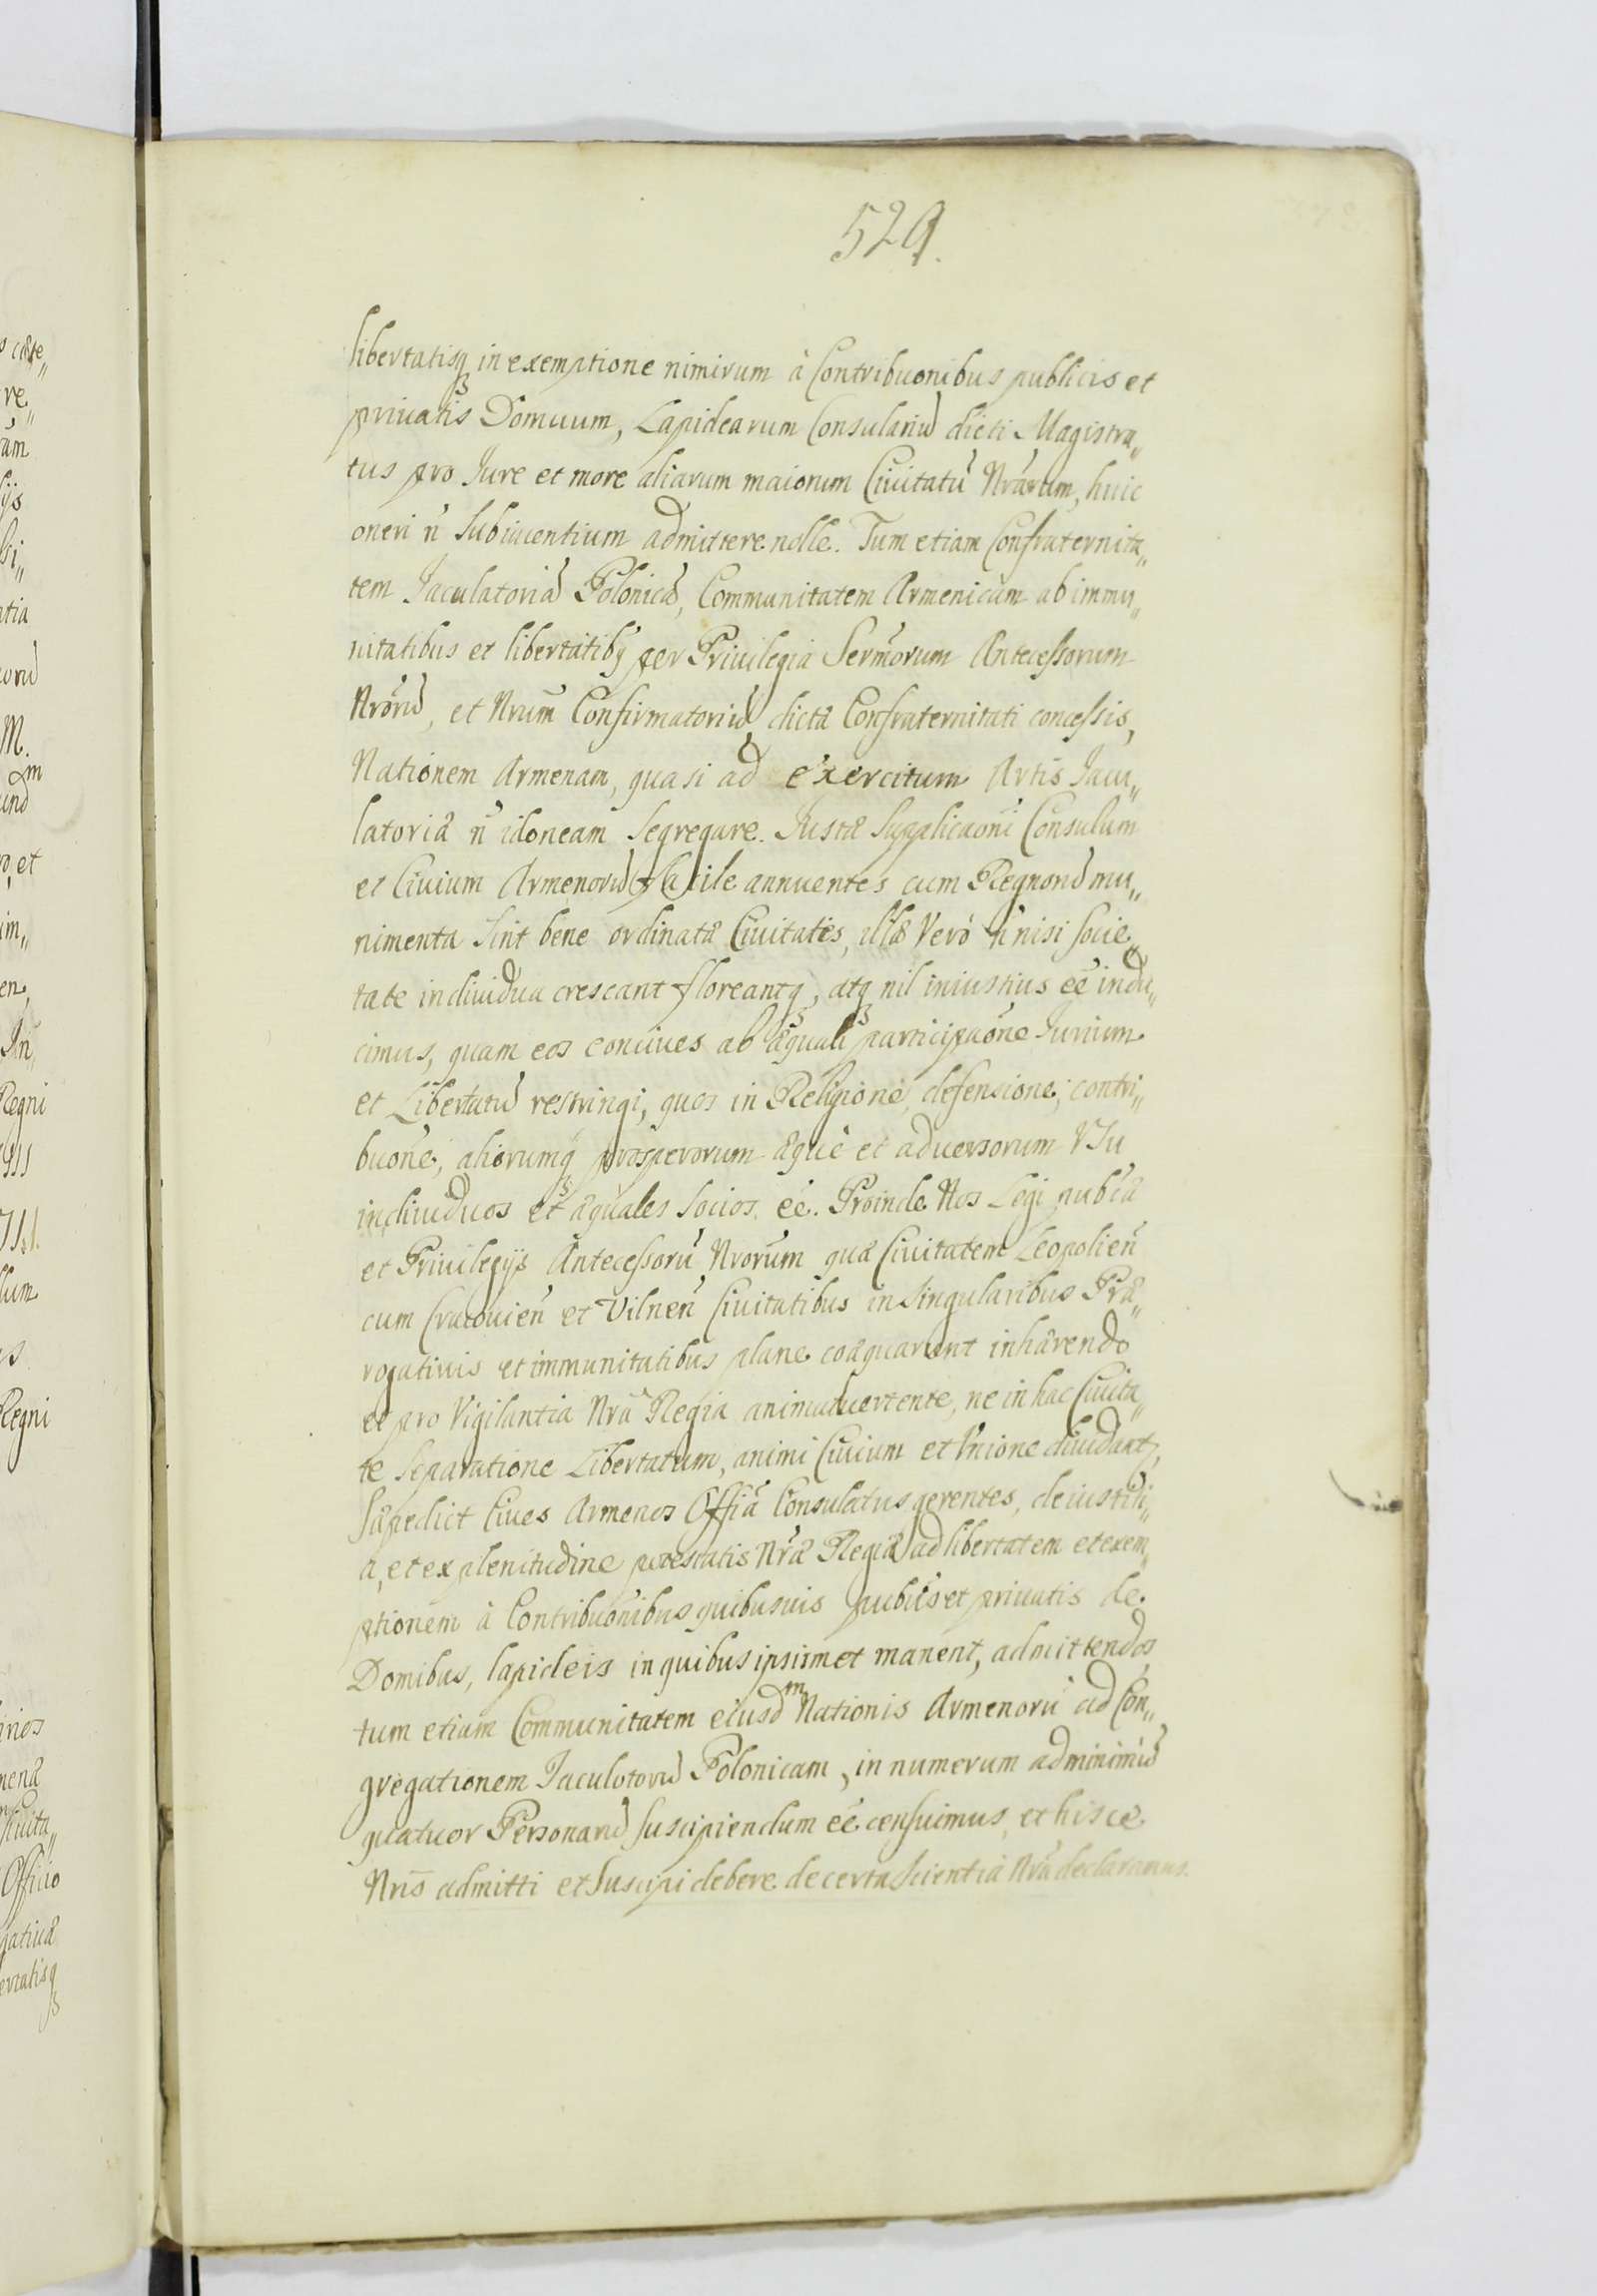 529.
libertatisq₃ in exemptione nimirum à Contribuõnibus publicis et
priuatis Domuum, Lapidearum Consulariũ dicti Magistra„
tus pro Jure et more aliarum maiorum Ciuitatũ Nrãrum, huic
oneri ñ Subiacentium admittere nolle. Tum etiam Confraternita„
tem Jaculatoriã Polonicã, Communitatem Armenicam ab immu„
nitatibus et libertatibq per Priuilegia Sermõrum Antecessorum
Nrõrũ, et Nrũm Confirmatoriũ dictæ Confraternitati concessis,
Nationem Armenam, quasi ad exercitum Artis Jacu„
latoriæ ñ idoneam Segregare. Justæ Supplicaõni Consulum
et Ciuium Armenorũ facile annuentes cum Regnorũ mu„
nimenta Sint bene ordinatæ Ciuitates, illæ Verò ñ nisi Socie„
tate indiuidua crescant floreantq₃, atq₃ nil iniustius eẽ indu„
cimus, quam eos conciues ab æquali participaõne Jurium
et Libertatũ restringi, quos in Religione, defensione, contri„
buõne, aliorumq₃ prosperorum æquè et aduersorum Vsu
indiuiduos et æquales Socios eẽ. Proinde Nos Legi publicæ
et Priuilegijs Antecessorũ Nrõrum quæ Ciuitatem Leopolieñ
cum Cracouieñ et Vilneñ Ciuitatibus in Singularibus Præ„
rogatiuis et immunitatibus plane coæquarunt inhærendo
et pro Vigilantia Nrã Regia animaduertente, ne in hac Ciuita„
te Separatione Libertatum, animi Ciuium et Vnione diuidant,
Sæpedict Ciues Armenos Offiã Consulatus gerentes, de iustiti„
a, et ex plenitudine potestatis Nræ Regiæ ad libertatem et exem„
ptionem à Contribuõnibus quibusuis pubcis et priuatis de
Domibus, lapideis in quibus ipsimet manent, admittendos
tum etiam Communitatem eiusdm Nationis Armenorũ ad Con„
gregationem Jaculotorũ Polonicam, in numerum ad minimũ
quatuor Personarũ Suscipiendum eẽ censuimus, et hisce
Nrĩs admitti et Suscipi debere de certa Scientia Nrã declaramus.